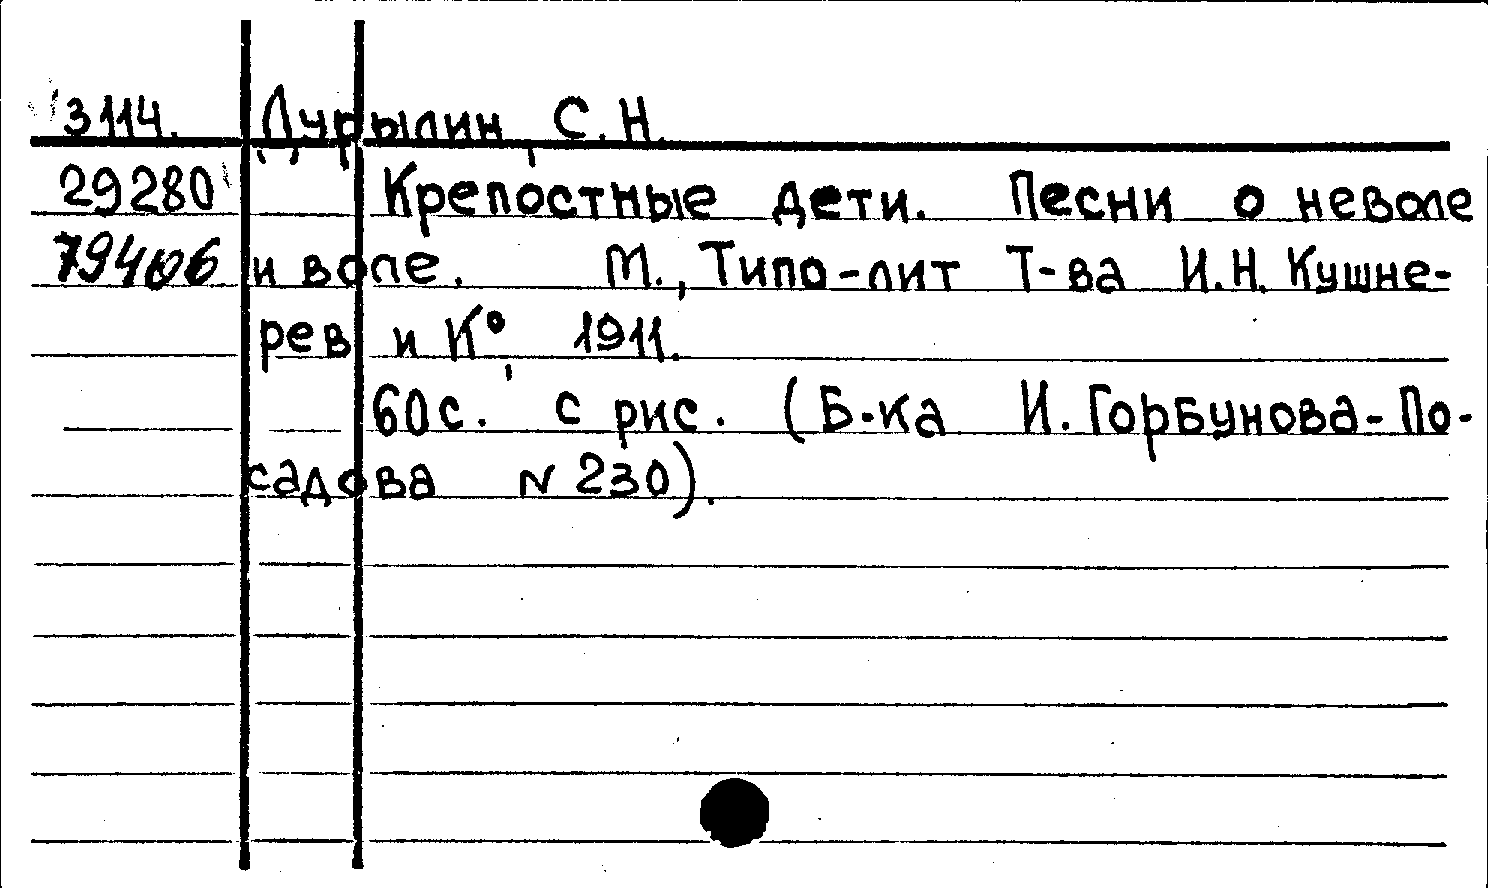 3114. Дурылин, С.Н.
29280 Крепостные дети. Песни о неволе
79406 и воле. М., Типо-лит Т-ва И.Н. Кушне-
рев и К°, 1911.
60с. с рис. (Б-ка И. Горбунова-По-
садова N 230).